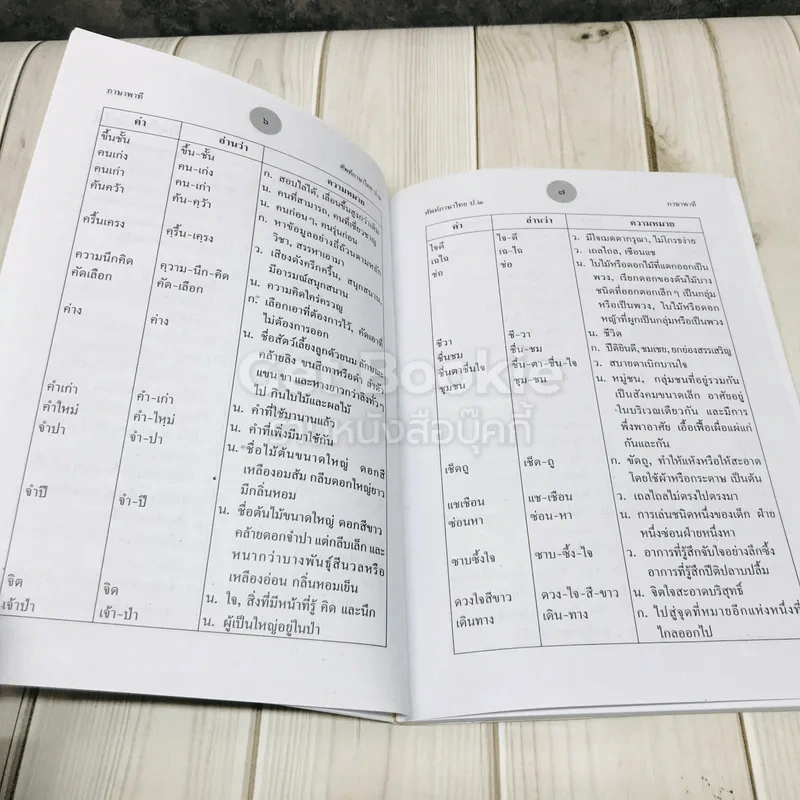 ภาษาพาที
๖
ศัพท์ภาษาไทย ป.๒
คำ อ่านว่า ความหมาย
ขึ้นชั้น ขึ้น-ชั้น ก. สอบไล่ได้, เลื่อนชั้นสูงกว่าเดิม
คนเก่ง คน-เก่ง น. คนที่สามารถ, คนที่เชี่ยวชาญ
คนเก่า คน-เก่า น. คนก่อนๆ, คนรุ่นก่อน
ค้นคว้า ค้น-คฺว้า ก. หาข้อมูลอย่างถี่ถ้วนตามหลัก
วิชา, สรรหาเอามา
ครื้นเครง คฺรื้น-เคฺรง ว. เสียงดังครึกครื้น, สนุกสนาน,
มีอารมณ์สนุกสนาน
ความนึกคิด คฺวาม-นึก-คิด น. ความคิดใคร่ครวญ
คัดเลือก คัด-เลือก ก. เลือกเอาที่ต้องการไว้, คัดเอาที่
ไม่ต้องการออก
ค่าง ค่าง น. ชื่อสัตว์เลี้ยงลูกด้วยนม ลักษณะ
คล้ายลิง ขนสีเทาหรือดำ ลำตัว
แขน ขา และหางยาวกว่าลิงทั่วๆ
ไป กินใบไม้และผลไม้
คำเก่า คำ-เก่า น. คำที่ใช้มานานแล้ว
คำใหม่ คำ-ใหฺม่ น. คำที่เพิ่งมีมาใช้กัน
จำปา จำ-ปา น. ชื่อไม้ต้นขนาดใหญ่ ดอกสี
เหลืองอมส้ม กลีบดอกใหญ่ยาว
มีกลิ่นหอม
จำปี จำ-ปี น. ชื่อต้นไม้ขนาดใหญ่ ดอกสีขาว
คล้ายดอกจำปา แต่กลีบเล็ก และ
หนากว่าบางพันธุ์สีนวลหรือ
เหลืองอ่อน กลิ่นหอมเย็น
จิต จิด น. ใจ, สิ่งที่มีหน้าที่รู้ คิด และนึก
เจ้าป่า เจ้า-ป่า น. ผู้เป็นใหญ่อยู่ในป่า
ศัพท์ภาษาไทย ป.๒
๗
ภาษาพาที
คำ อ่านว่า ความหมาย
ใจดี ใจ-ดี ว. มีใจเมตตากรุณา, ไม่โกรธง่าย
เฉไฉ เฉ-ไฉ ว. เถลไถล, เชือนแช
ช่อ ช่อ น. ใบไม้หรือดอกไม้ที่แตกออกเป็น
พวง, เรียกดอกของต้นไม้บาง
ชนิดที่ออกดอกเล็กๆ เป็นกลุ่ม
หรือเป็นพวง, ใบไม้หรือดอก
หญ้าที่ผูกเป็นกลุ่มหรือเป็นพวง
ชีวา ชี-วา น. ชีวิต
ชื่นชม ชื่น-ชม ก. ปีติยินดี, ชมเชย, ยกย่องสรรเสริญ
ชื่นตาชื่นใจ ชื่น-ตา-ชื่น-ใจ ว. สบายตาเบิกบานใจ
ชุมชน ชุม-ชน น. หมู่ชน, กลุ่มชนที่อยู่รวมกัน
เป็นสังคมขนาดเล็ก อาศัยอยู่
ในบริเวณเดียวกัน และมีการ
พึ่งพาอาศัย เอื้อเฟื้อเผื่อแผ่แก่
กันและกัน
เช็ดถู เช็ด-ถู ก. ขัดถู, ทำให้แห้งหรือให้สะอาด
โดยใช้ผ้าหรือกระดาษ เป็นต้น
แชเชือน แช-เชือน ว. เถลไถลไม่ตรงไปตรงมา
ซ่อนหา ซ่อน-หา น. การเล่นชนิดหนึ่งของเด็ก ฝ่าย
หนึ่งซ่อนฝ่ายหนึ่งหา
ซาบซึ้งใจ ซาบ-ซึ้ง-ใจ ว. อาการที่รู้สึกจับใจอย่างลึกซึ้ง
อาการที่รู้สึกปีติปลาบปลื้ม
ดวงใจสีขาว ดวง-ใจ-สี-ขาว น. จิตใจสะอาดบริสุทธิ์
เดินทาง เดิน-ทาง ก. ไปสู่จุดที่หมายอีกแห่งหนึ่งที่
ไกลออกไป
Get Bookie
ร้านหนังสือบุ๊คกี้